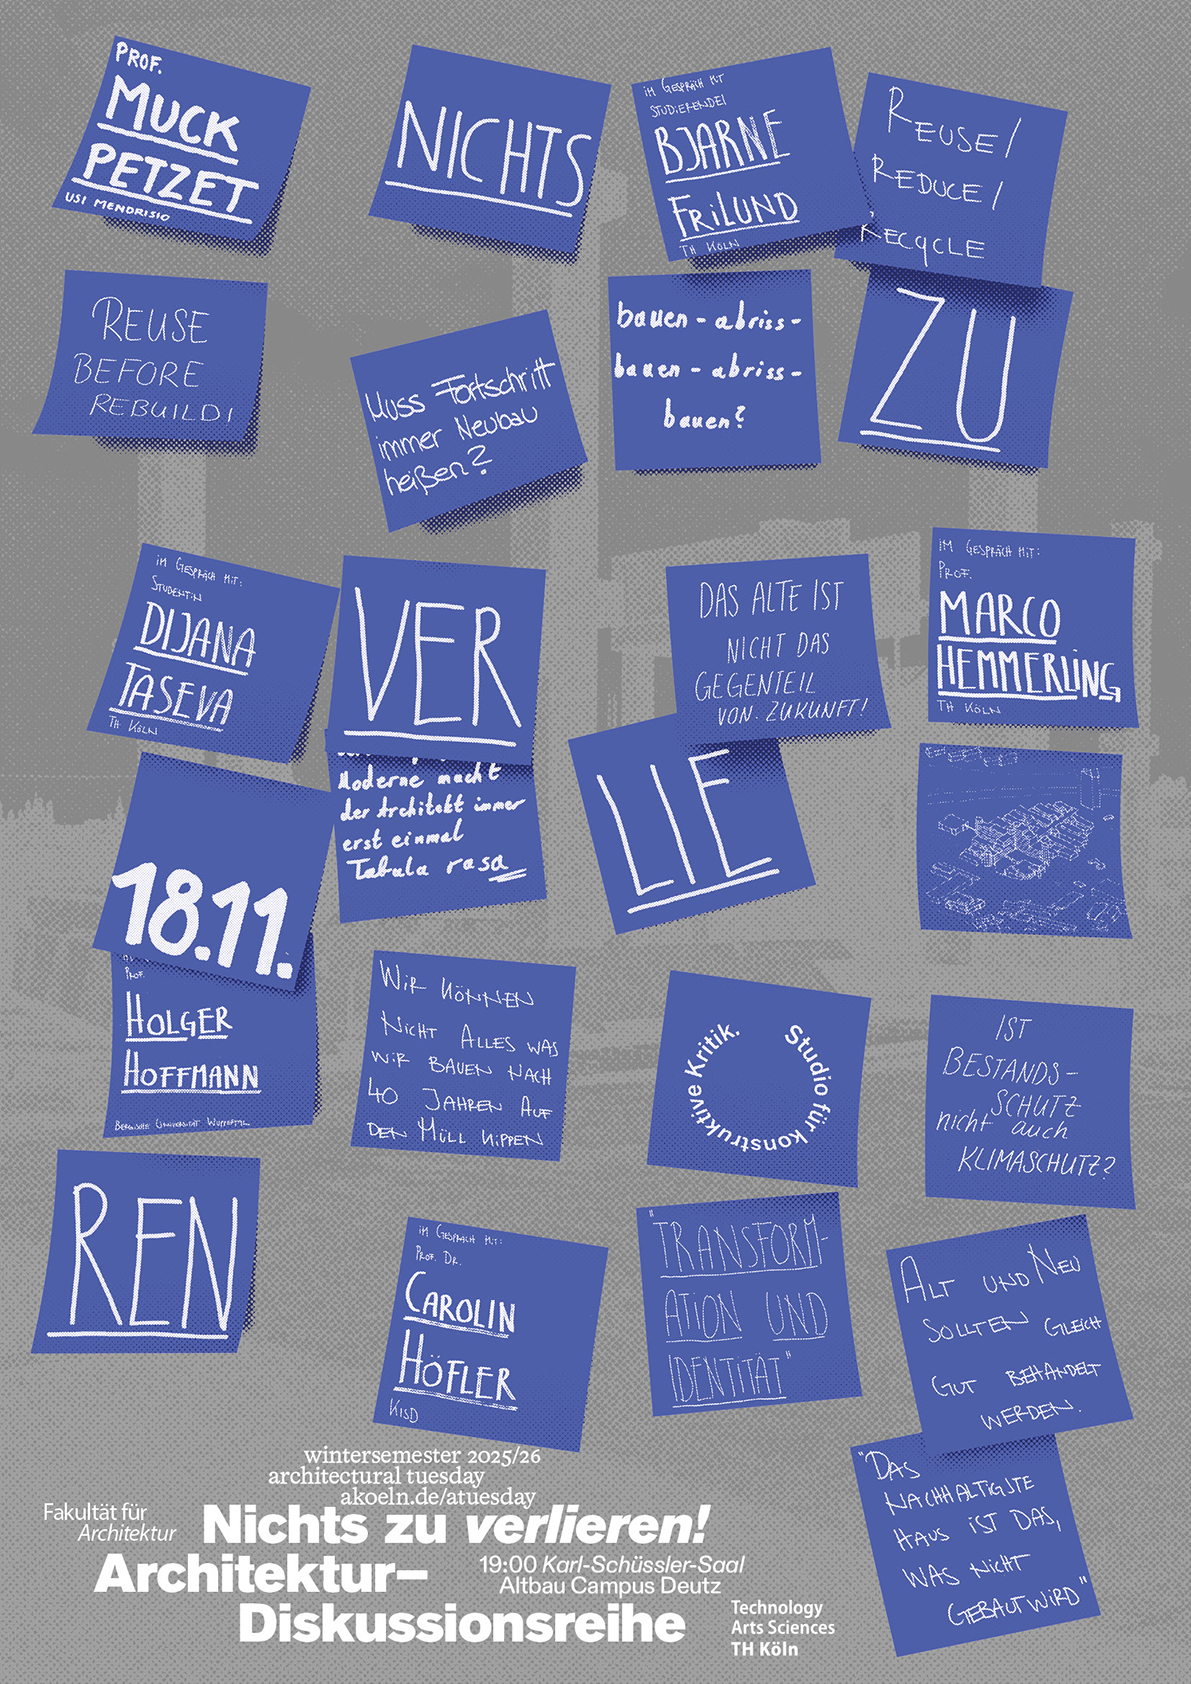 PROF.
MUCK
PETZET
USI MENDRISIO
NICHTS
im GESPRÄCH MIT
STUDIERENDEI
BJARNE
FRiLUND
TH KÖLN
REUSE/
REDUCE/
RECYCLE
REUSE
BEFORE
REBUILDI
Muss Fortschritt
immer Neubau
heißen?
bauen - abriss -
bauen - abriss -
bauen?
ZU
im GESPRÄCH MIT:
STUDENTiN
DIJANA
TASEVA
TH KÖLN
VER
Moderne macht
der Architekt immer
erst einmal
Tabula rasa
DAS ALTE IST
NICHT DAS
GEGENTEIL
VON. ZUKUNFT!
IM GESPRÄCH MIT:
PROF.
MARCO
HEMMERLiNG
TH KÖLN
LIE
18.11.
PROF.
HOLGER
HOFFMANN
BERGISCHE UNIVERSITÄT WUPPERTAL
WiR KÖNNEN
NiCHT ALLES WAS
WiR BAUEN NACH
40 JAHREN AUF
DEN MÜLL KiPPEN
Studio für konstruktive Kritik.
IST
BESTANDS-
SCHUTZ
nicht auch
KLIMASCHUTZ?
REN
iM GESPRÄCH MiT:
PROF. DR.
CAROLIN
HÖFLER
KISD
"TRANSFORM-
ATION UND
IDENTiTÄT"
ALT UND NEU
SOLLTEN GLEICH
GUT BEHANDELT
WERDEN.
"DAS
NACHHALTIGSTE
HAUS iST DAS,
WAS NiCHT
GEBAUT WiRD"
wintersemester 2025/26
architectural tuesday
akoeln.de/atuesday
Fakultät für
Architektur
Nichts zu verlieren!
Architektur–
Diskussionsreihe
19:00 Karl-Schüssler-Saal
Altbau Campus Deutz
Technology
Arts Sciences
TH Köln